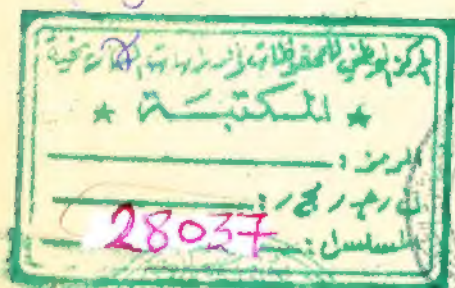 المركز الوطني للمخطوطات والدراسات التاريخية
★ المكتبة ★
الرمز :
ر :
المسلسل : 28037